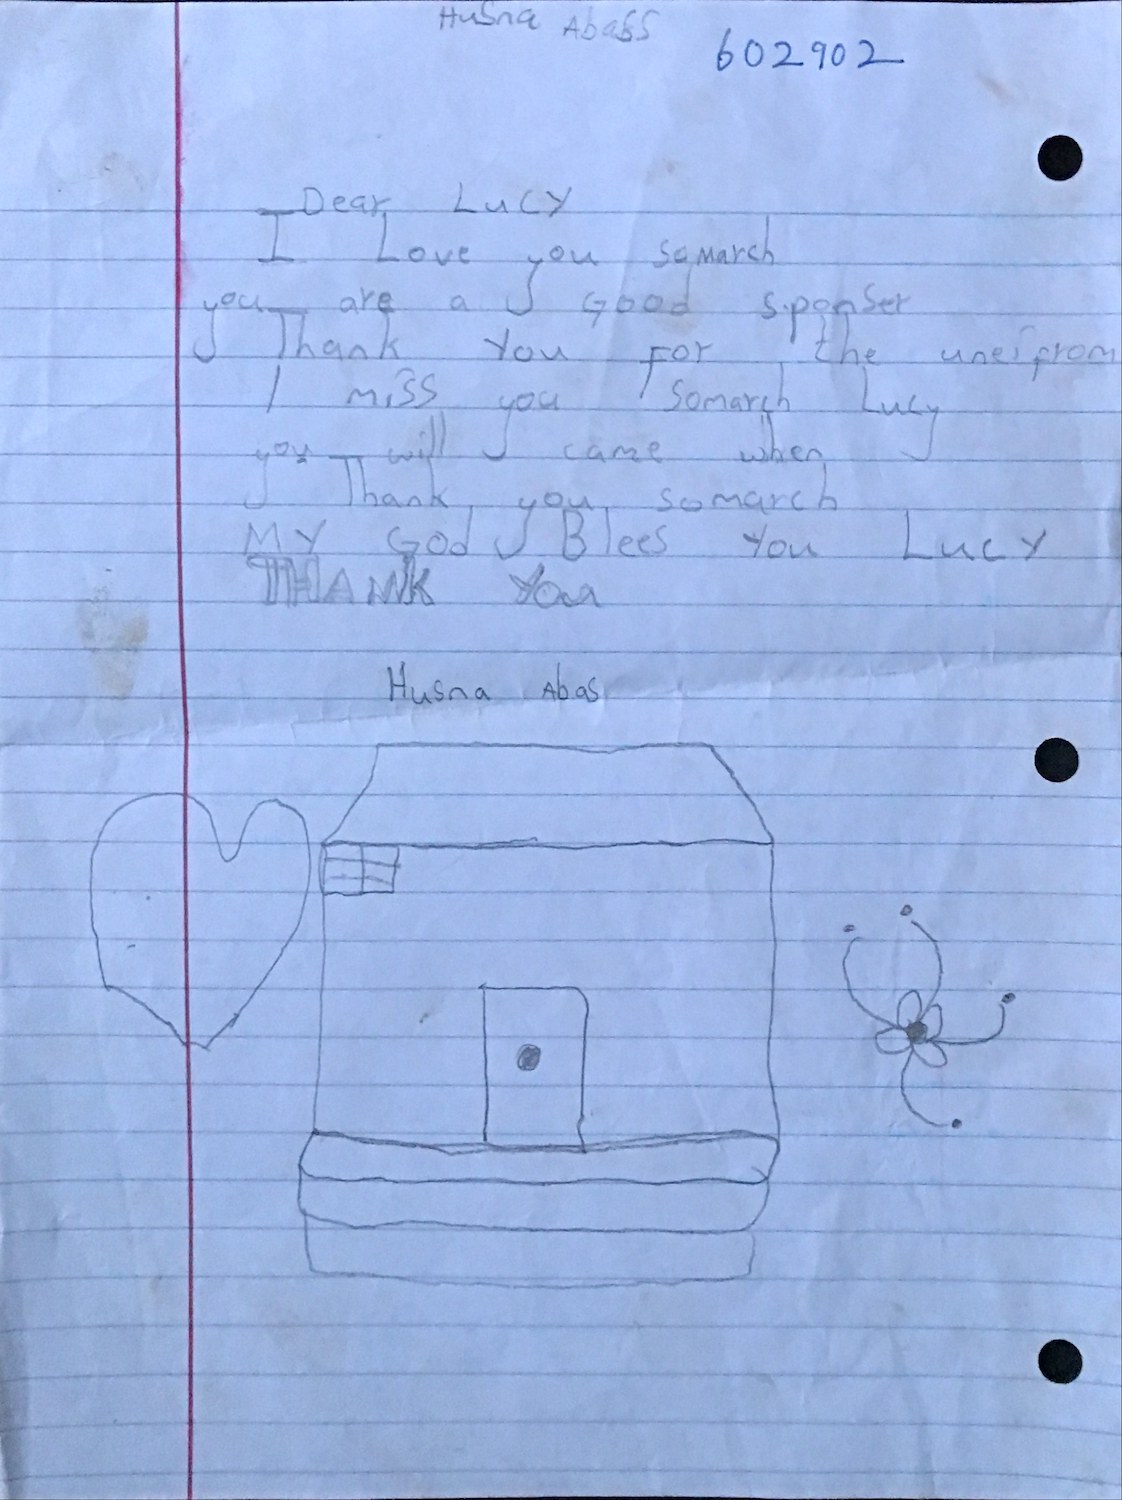 Husna Abass
602902
Dear Lucy
I Love you somarch
you are a Good sponser
Thank You For the uneifrom
I miss you Somarch Lucy
you will came when
Thank you somarch
MY God Blees You Lucy
THANK You
Husna Abas